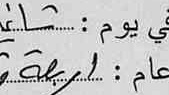 في يوم : ثماني
عام : اربعة